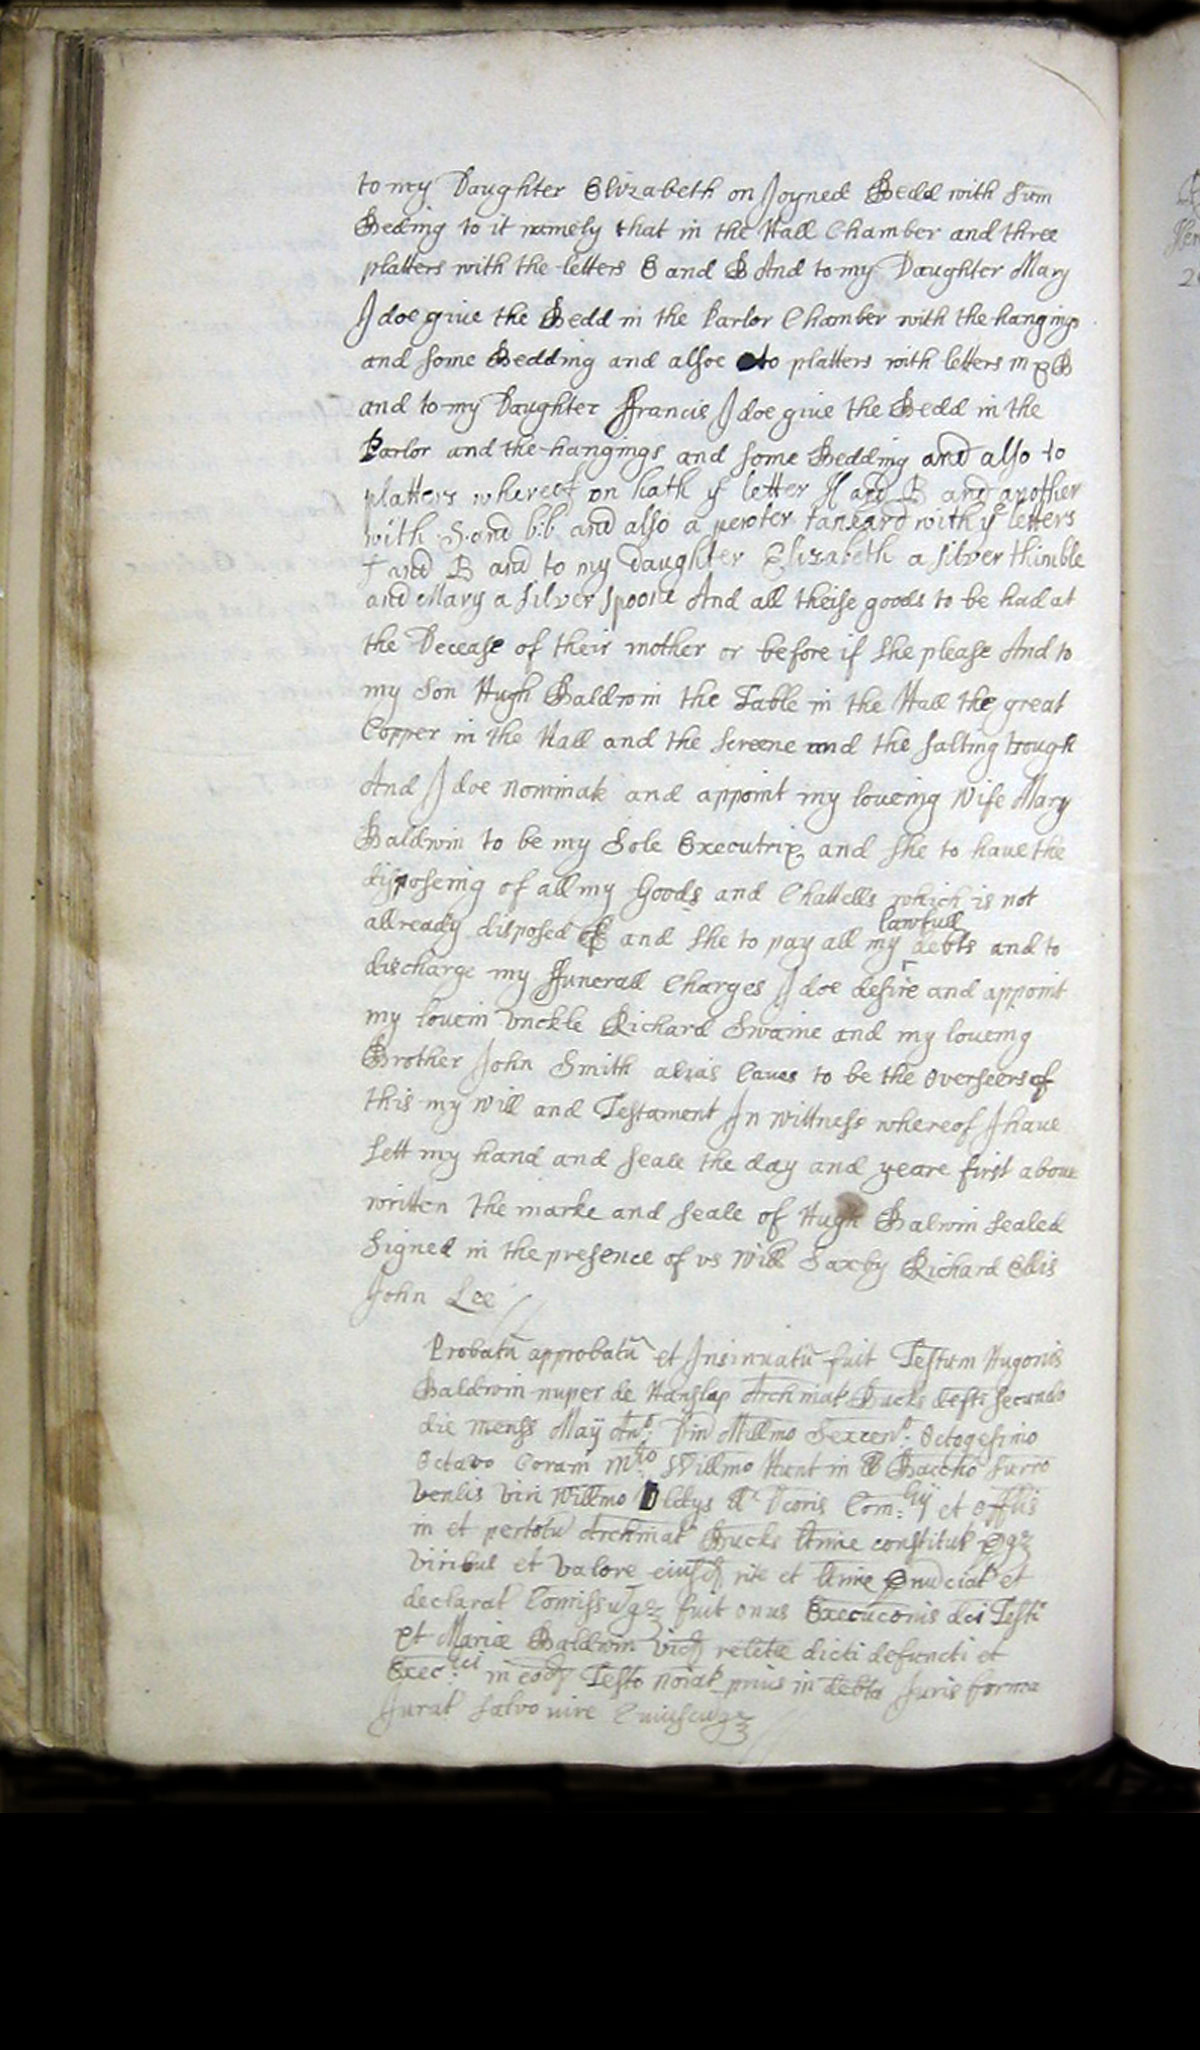 to my Daughter Elizabeth on Joyned Bedd with sum
Beding to it namely that in the Hall Chamber and three
platters with the letters E and B And to my Daughter Mary
I doe giue the Bedd in the Parlor Chamber with the hangings
and some Bedding and allsoe to platters with letters m B
and to my Daughter Francis I doe giue the Bedd in the
Parlor and the hangings and some Bedding and also to
platters whereof on hath ye letter H and B and another
with S and b:b and also a pewter tankard with ye letters
f and B and to my daughter Elizabeth a silver thimble
and Mary a silver spoone And all theise goods to be had at
the Decease of their mother or before if she please And to
my Son Hugh Baldwin the Table in the Hall the great
Copper in the Hall and the screene and the salting trough
And I doe nominate and appoint my loueing Wife Mary
Baldwin to be my Sole Executrix and she to haue the
disposeing of all my Goods and Chattells which is not
allready disposed of and she to pay all my lawfull debts and to
discharge my Funerall Charges I doe desire and appoint
my louein Vnckle Richard Swaine and my loueing
Brother John Smith alias Caues to be the Overseers of
this my Will and Testament In wittness whereof I haue
sett my hand and seale the day and yeare first aboue
written the marke and seale of Hugh Balwin sealed
Signed in the presence of vs Will Saxby Richard Ellis
John Lee
Probatū approbatū et Insinuatū fuit Testum Hugonis
Baldwin nuper de Hanslap Archinat Bucks defti secundo
die menss Maij Ano: Dni Millmo Sexcen: Octogesimo
Octavo Coram Willmo Hunt in Baccho surro
venlis viri Willmo Com: et offlis
in et pertotū Archinat Bucks ltime constitut
viribus et valore eiusd rite et ltime et
declarat Comissuqz fuit onus Execuconis dci Testi
et Mariæ Baldwin vid relcte dicti defuncti et
Exec: in eod Testo noiat prius in debta Juris forma
Jurat salvo iure Cuiuscuqz